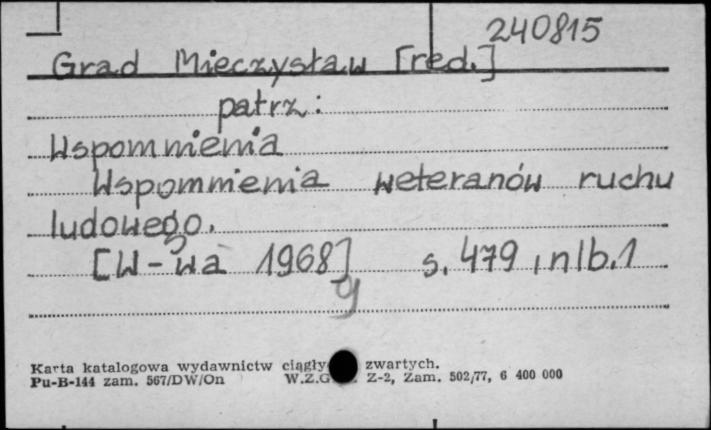 240815
Grad Mieczysław [red.]
patrz:
Wspomnienia
Wspomnienia weteranów ruchu
ludowego.
[W-wa 1968] s. 479, nlb. 1
Karta katalogowa wydawnictw zwartych.
Pu-B-144 zam. 567/DW/On Z-2, Zam. 502/77, 6 400 000